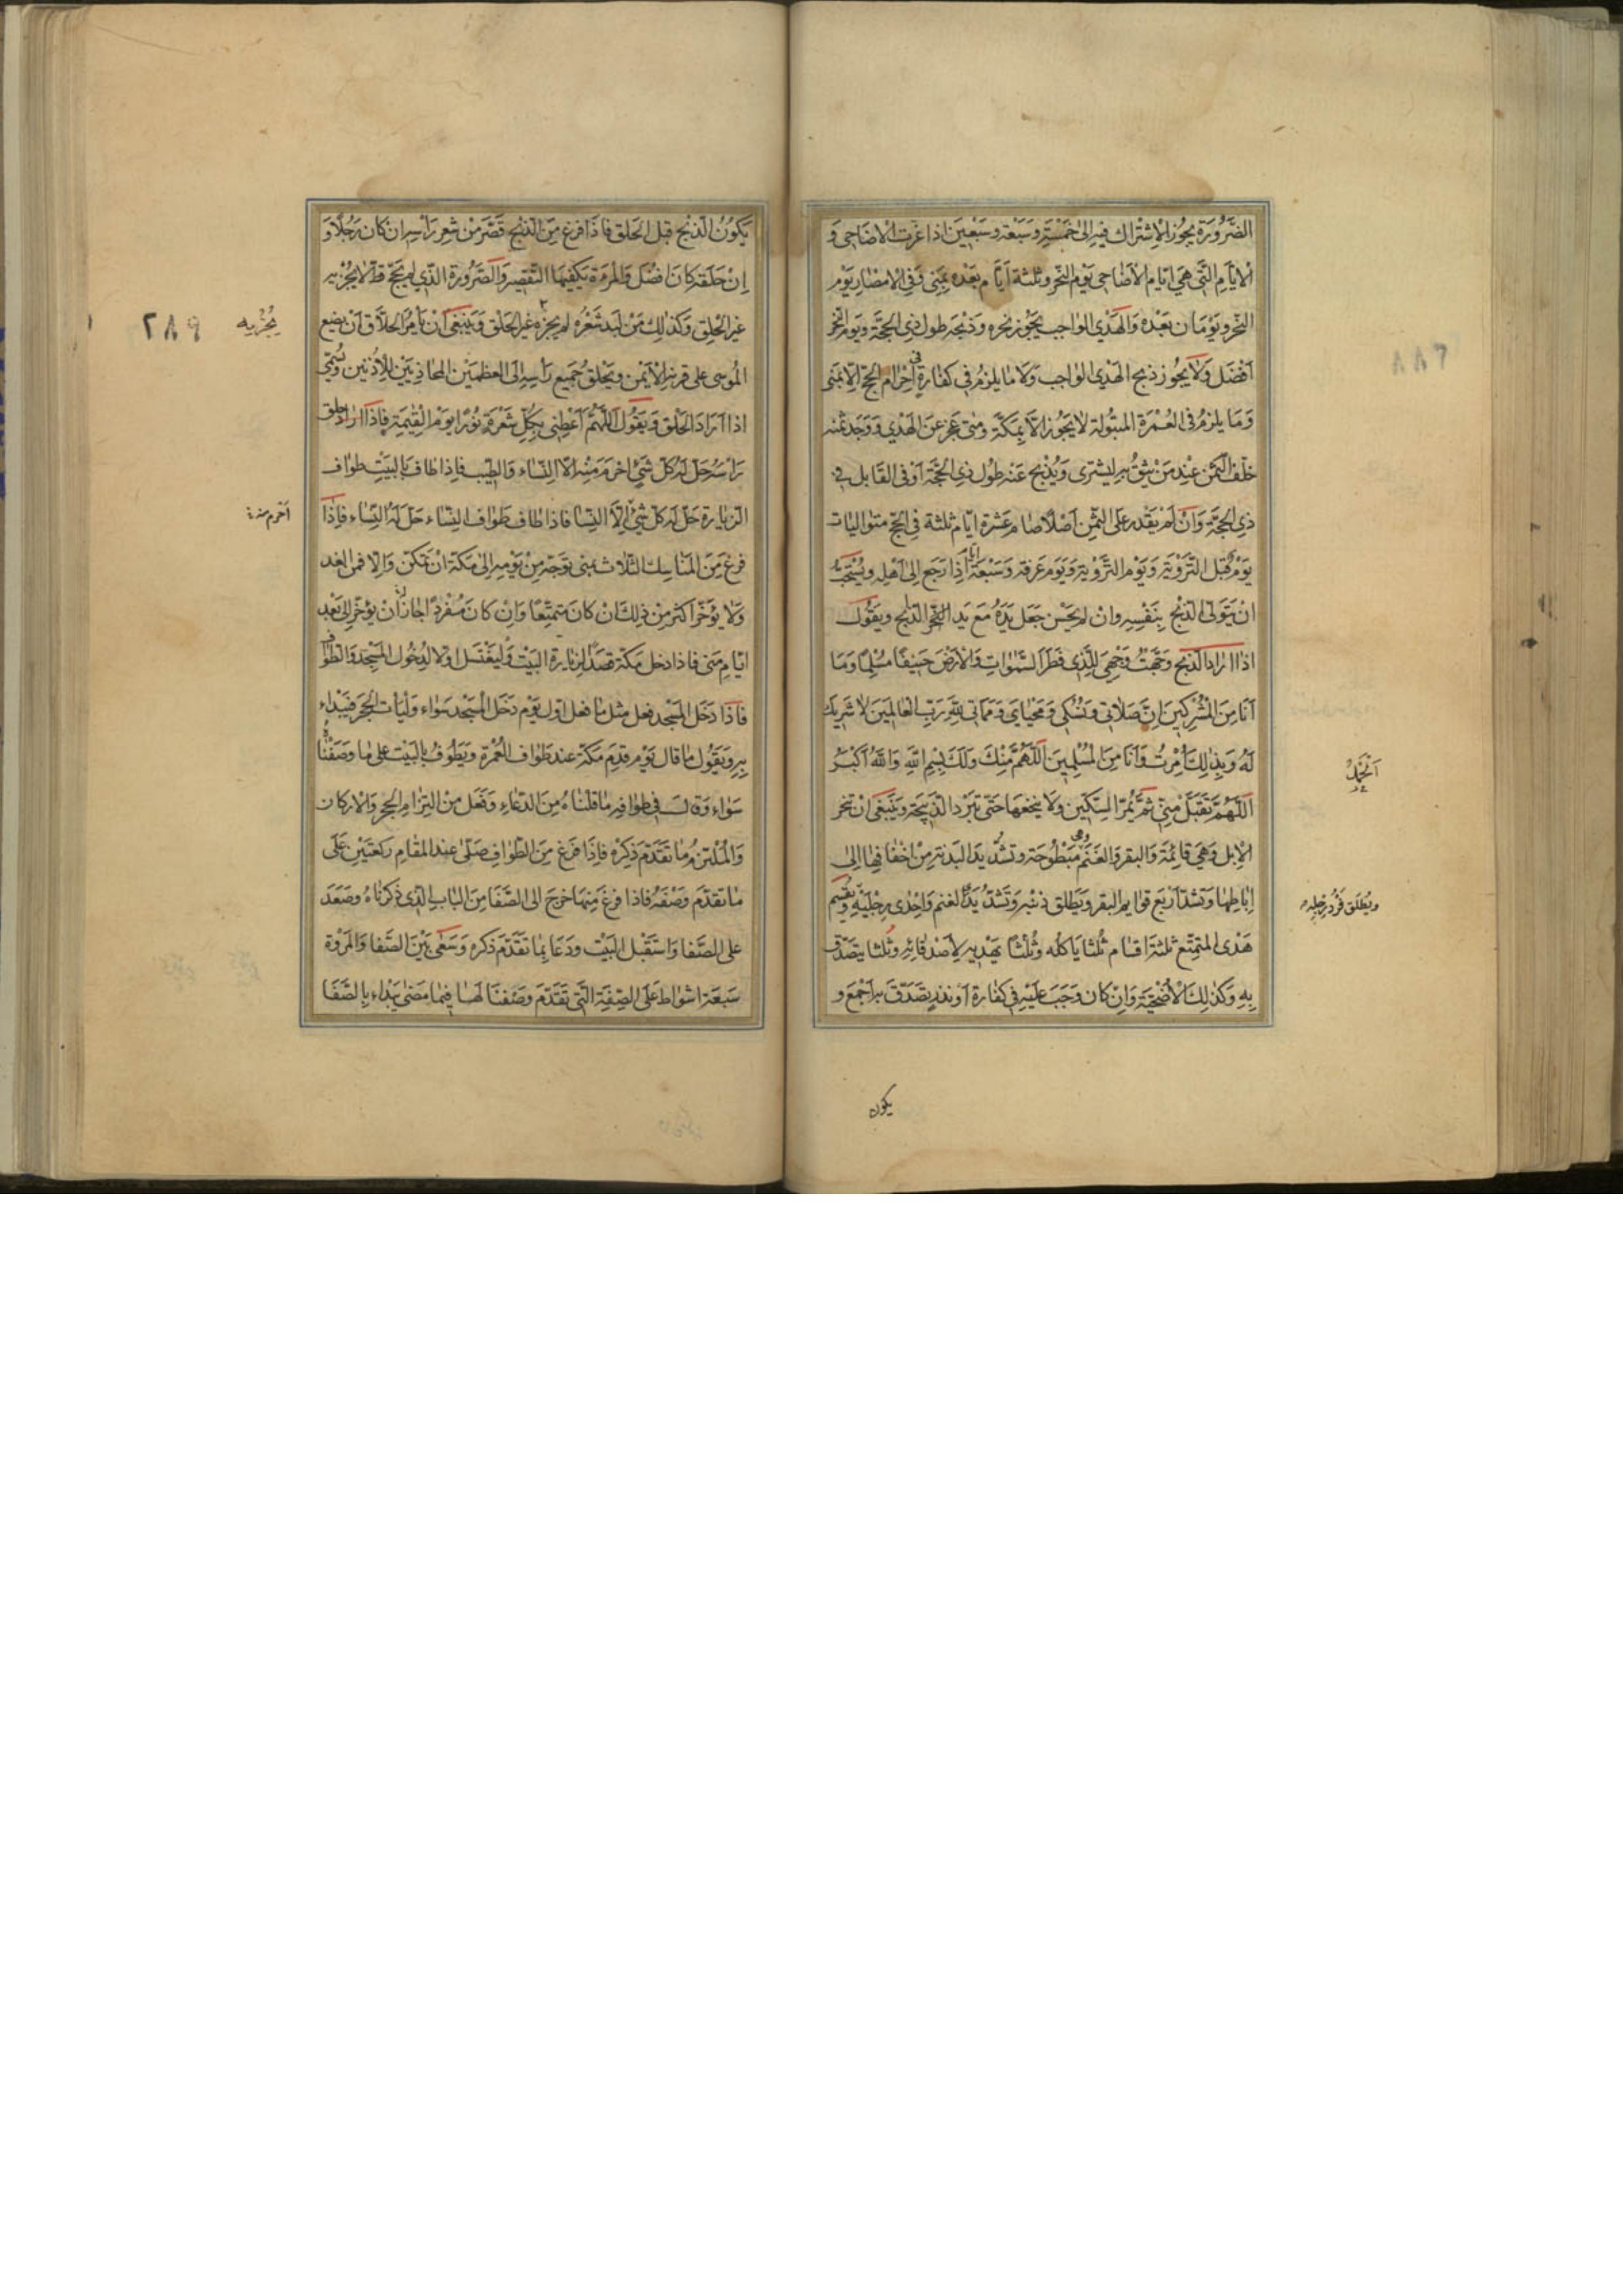 الضَّرُورَة يجُوز الاِشْتِراك فيهِ اِلىٰ خَمْسَةٍ وسَبْعَة وسَبْعِينَ اذا عَزّت الاَضَاحِى وَ
الاَيَّامِ الَّتى هِىَ ايّام الاَضَاحِى يَوْم النّحر وثلثة اَيَّام بَعْده بِمِنى وَفى الاَمْصَارِ يَوْم
النّحر ويَوْمَان بَعْدَهُ وَالهَدْى الوَاجب يَجُوز نحره وذبْحه طول ذِى الحجّة ويَوم النّحر
اَفْضَل وَلَا يجُوز ذبح الهَدْىِ الوَاجب وَلَا مَا يلزمُ فى كَفَارةٍ فى اِحْرَامِ الحجّ الاّ بمنى
وَمَا يلزمُ فى العُمْرَة المَبْتُولة لَا يَجُوز الاّ بمَكّة ومَتى عَجز عَنِ الهَدْى وَوَجَد ثمنه
خلّف الثّمَن عِنْد مَنْ يثِقُ بهِ ليشترى وَيُذْبح عَنه طُول ذِى الحجّة اَوْ فى القَابل فى
ذِى الحجّة وَانْ لَمْ يقْدِر عَلَى الثّمَنِ اَصْلاً صَام عَشْرَة ايّام ثلثة فى الحجّ متوالِيَات
يَوْم قَبْل التَّرْوِيَة وَيَوْم التَّرْوِيَة وَيَوم عَرفة وَسَبْعَة اَيام اِذَا رَجَع اِلىٰ اَهْلِه ويُسْتَحَبّ
انْ يَتَولّى الذّبح بِنَفْسِهِ وان لم يحْسِن جَعَل يَدَهُ مَعَ يَد الذّابح ويَقُولُ
اذا اَرَادَ الذّبح وَجَّهْتُ وَجْهِىَ لِلَّذِى فَطَرَ السَّمٰوَاتِ وَالاَرْضَ حَنِيفًا مُسْلِمًا وَمَا
اَنَا مِنَ المُشْرِكِينَ اِنَّ صَلَاتى وَنُسُكى وَمَحْيَاىَ وَمَمَاتى للهِ رَبِّ العَالَمِينَ لَا شَرِيكَ
لَهُ وَبِذٰلِكَ اُمِرْتُ وَاَنَا مِنَ المُسْلِمِينَ اَللّٰهُمَّ مِنْكَ وَلَكَ بِسْمِ اللهِ وَاللهُ اَكْبَرُ
اَللّٰهُمَّ تَقَبَّلْ مِنّى ثُمَّ يُمِرّ السِّكّين وَلَا ينخعها حَتّى تَبْرد الذّبيحَة وَيَنْبَغى انْ تنحر
الاِبل وَهِىَ قَائِمَة وَالبقر وَالغَنَم وهى مَبْطُوحَة وتشدّ يَد البَدَنة مِنْ اخفَافِهَا اِلىٰ
اِبَاطِهَا وَتشدّ اَرْبَع قوايم البقر وَيطلق ذنبه وَتشدّ يَدَا الغنم وَاِحْدى رِجْلَيْهِ وَيُقْسم
هَدْى المتمتّع ثلثة اقسَام ثُلثا ياَكله وثُلثًا يَهْديهِ لاَصْدقائِهِ وثُلثا يَتَصَدّق
بِهِ وَكذٰلِكَ الاُضْحِيَّة وَاِنْ كان وَجَبَ عَلَيْهِ فى كفارة اَوْ نذرٍ يَصَدّقَ بهِ اَجْمَع و
وَيُطلق فَرْد رِجْلَيْهِ
يكون
يَكُونُ الذّبح قبل الحَلق فاذا فَرغ مِنَ الذّبح قَصَّرَ مِنْ شعر رَأسِهِ ان كان رَجُلًا وَ
اِنْ حَلَقه كانَ افْضَل وَالمرءة يَكفِيهَا التّقصِير وَالصّرُورة الّذِي لم يَحجّ قطّ لَا يجُزيه
غير الحلق وَكذٰلِكَ مَنْ لَبّد شَعْرُه لم يُجزه غير الحَلق وَيَنْبَغى اَنْ يَأمر الحَلّاق اَنْ يضع
المُوسى على قرنِهِ الاَيمَن ويَحلق جَميع رَأسِهِ اِلَى العظمَيْن المحَاذِيَيْن لِلاُذنَيْن ويُسَمّى
اذا اَرَادَ الحَلق وَيَقُول اَللّٰهُمَّ اَعْطِنى بِكُلِّ شَعْرَةٍ نُورًا يَوْمَ القِيٰمَةِ فاِذَا اَرَادَ حلق
رَأسَهُ حَلّ لَهُ كلّ شَيْءٍ احْرَمَ مِنْهُ الاّ النِّسَاء وَالطّيب فاِذا طَاف بِالبيَتِ طواف
الزّيَارة حَلّ لَهُ كلّ شَيْءٍ اِلاَّ النِّسَا فاذا طَاف طَوَاف النِّسَاء حَلّ لَهُ النِّسَاء فاِذَا
فرغ مِنَ المنَاسِك الثّلاث بمنى توَجّه مِنْ يَوْمِهِ اِلىٰ مَكّة انْ تَمَكَّن وَاِلّا فمن الغد
وَلَا يُؤَخّر اكثر مِنْ ذٰلِكَ انْ كان مَتمتِّعًا وَاِنْ كَانَ مُفردًا جَازَ لَهُ اَنْ يُؤخّر اِلىٰ بَعْدِ
ايّامِ مِنى فاذا دخل مَكّة قَصَد لِزيارة البَيْت وَلِيَغْتسل اوّلاً لِدُخُول المَسْجِد وَالطّوَاف
فاذا دَخَل المَسْجد فعل مثل مَا فعل اوّل يَوْم دَخَل المَسْجد سَوَاء وَلْيَأتِ الحَجَر فَيَبْداء
بِهِ وَيَقُول مَا قال يَوْم قدِم مَكّة عند طَوَاف العُمْرة وَيَطُوفُ بِالبَيْتِ على مَا وصَفْنَاه
سَوَاء وَقال فى طوَافِهِ مَا قلنَاهُ مِنَ الدّعَاءِ وَفَعَل مِنَ التِزَام الحَجر وَالاَركان
وَالمُلتزم مَا تقَدّم ذِكرْه فاِذا فَرغ مِنَ الطّوَاف صَلّى عند المقَامِ رَكعَتَيْنِ عَلَى
مَا تقدّم وَصْفَهُ فاذا فرغَ مِنهَا خرَج الى الصَّفَا مِنَ البَاب الّذِى ذَكرنَاهُ وصَعَدَ
على الصّفَا وَاسْتَقْبل البَيْت وَدَعَا بِمَا تقَدّم ذكره وَسَعَى بَيْنَ الصّفَا وَالمَرْوة
سَبعَة اشواطٍ عَلَى الصِّفَةِ الّتى تَقَدّمَ وَصْفنَا لهَا فيمَا مَضىٰ يَبْداء بِالصَّفَا
يُجْزيه
٢٨٩
اَحْرم منه